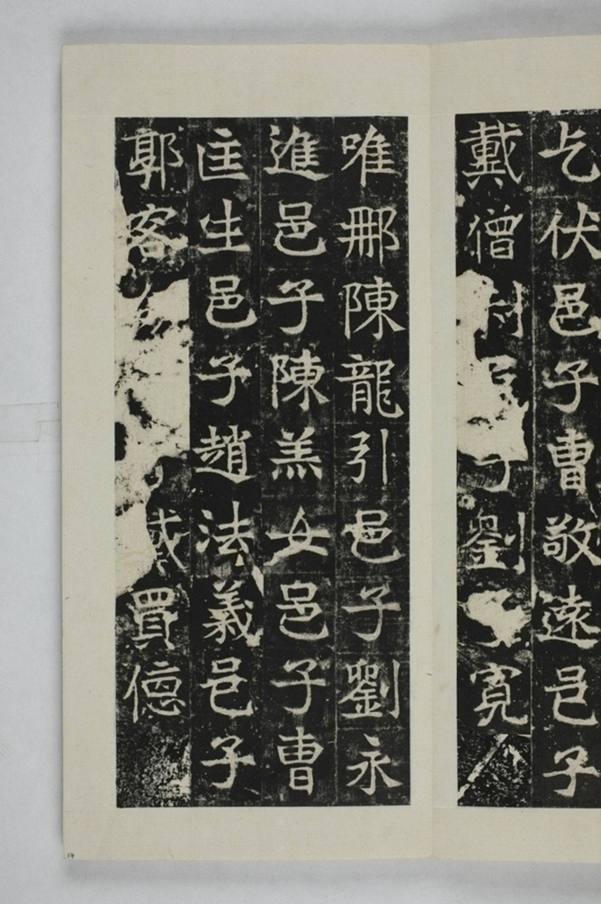 乞伏邑子曹敬遠邑子
戴僧 子劉 寬
唯那陳龍引邑子劉永
進邑子陳羔女邑子曹
匡生邑子趙法義邑子
郭客 戴買德